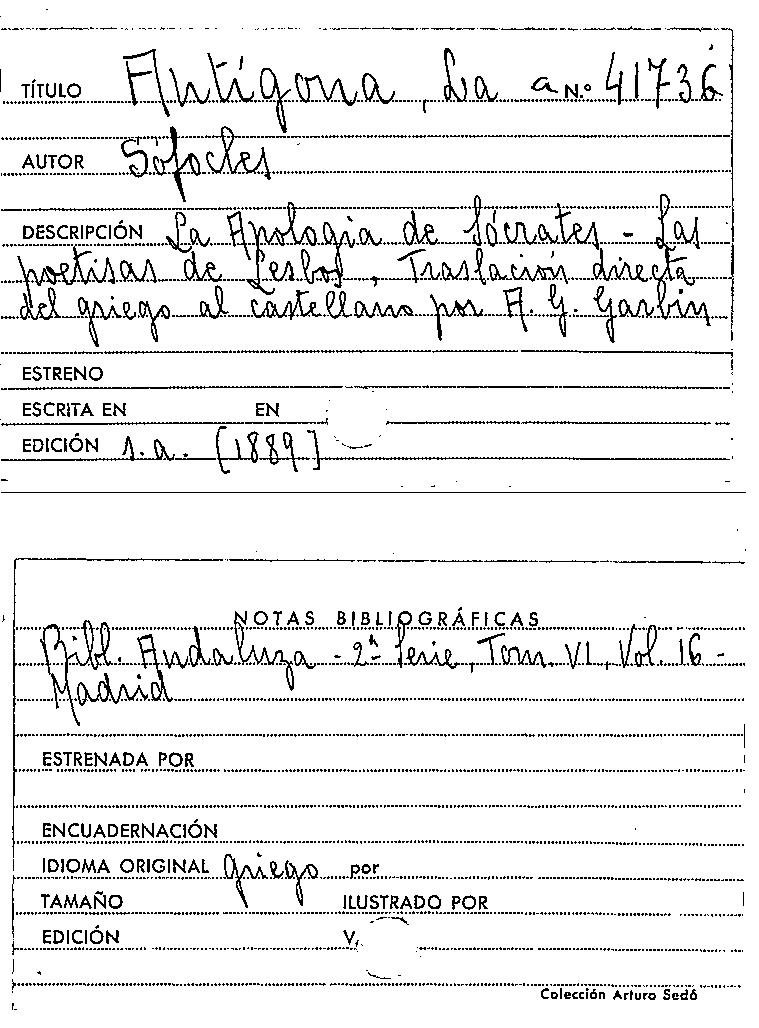 TÍTULO Antígona, La a N.º 41736
AUTOR Sófocles
DESCRIPCIÓN La Apologia de Sócrates - Las
poetisas de Lesbos, Traslación directa
del griego al castellano por A. G. Garbin
ESTRENO
ESCRITA EN EN
EDICIÓN s.a. [1889]
NOTAS BIBLIOGRÁFICAS
Bibl. Andaluza - 2ª Serie, Tom. VI, Vol. 16 -
Madrid
ESTRENADA POR
ENCUADERNACIÓN
IDIOMA ORIGINAL griego por
TAMAÑO ILUSTRADO POR
EDICIÓN V.
Colección Arturo Sedó